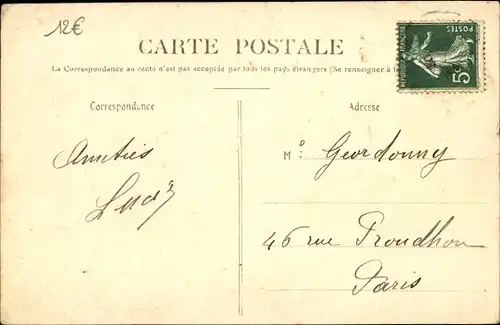 12€
CARTE POSTALE
La Correspondance au recto n'est pas acceptée par tous les pays étrangers (Se renseigner à la
Correspondance
Adresse
POSTES
5c
Amitiés
M°
46 rue Proudhon
Paris